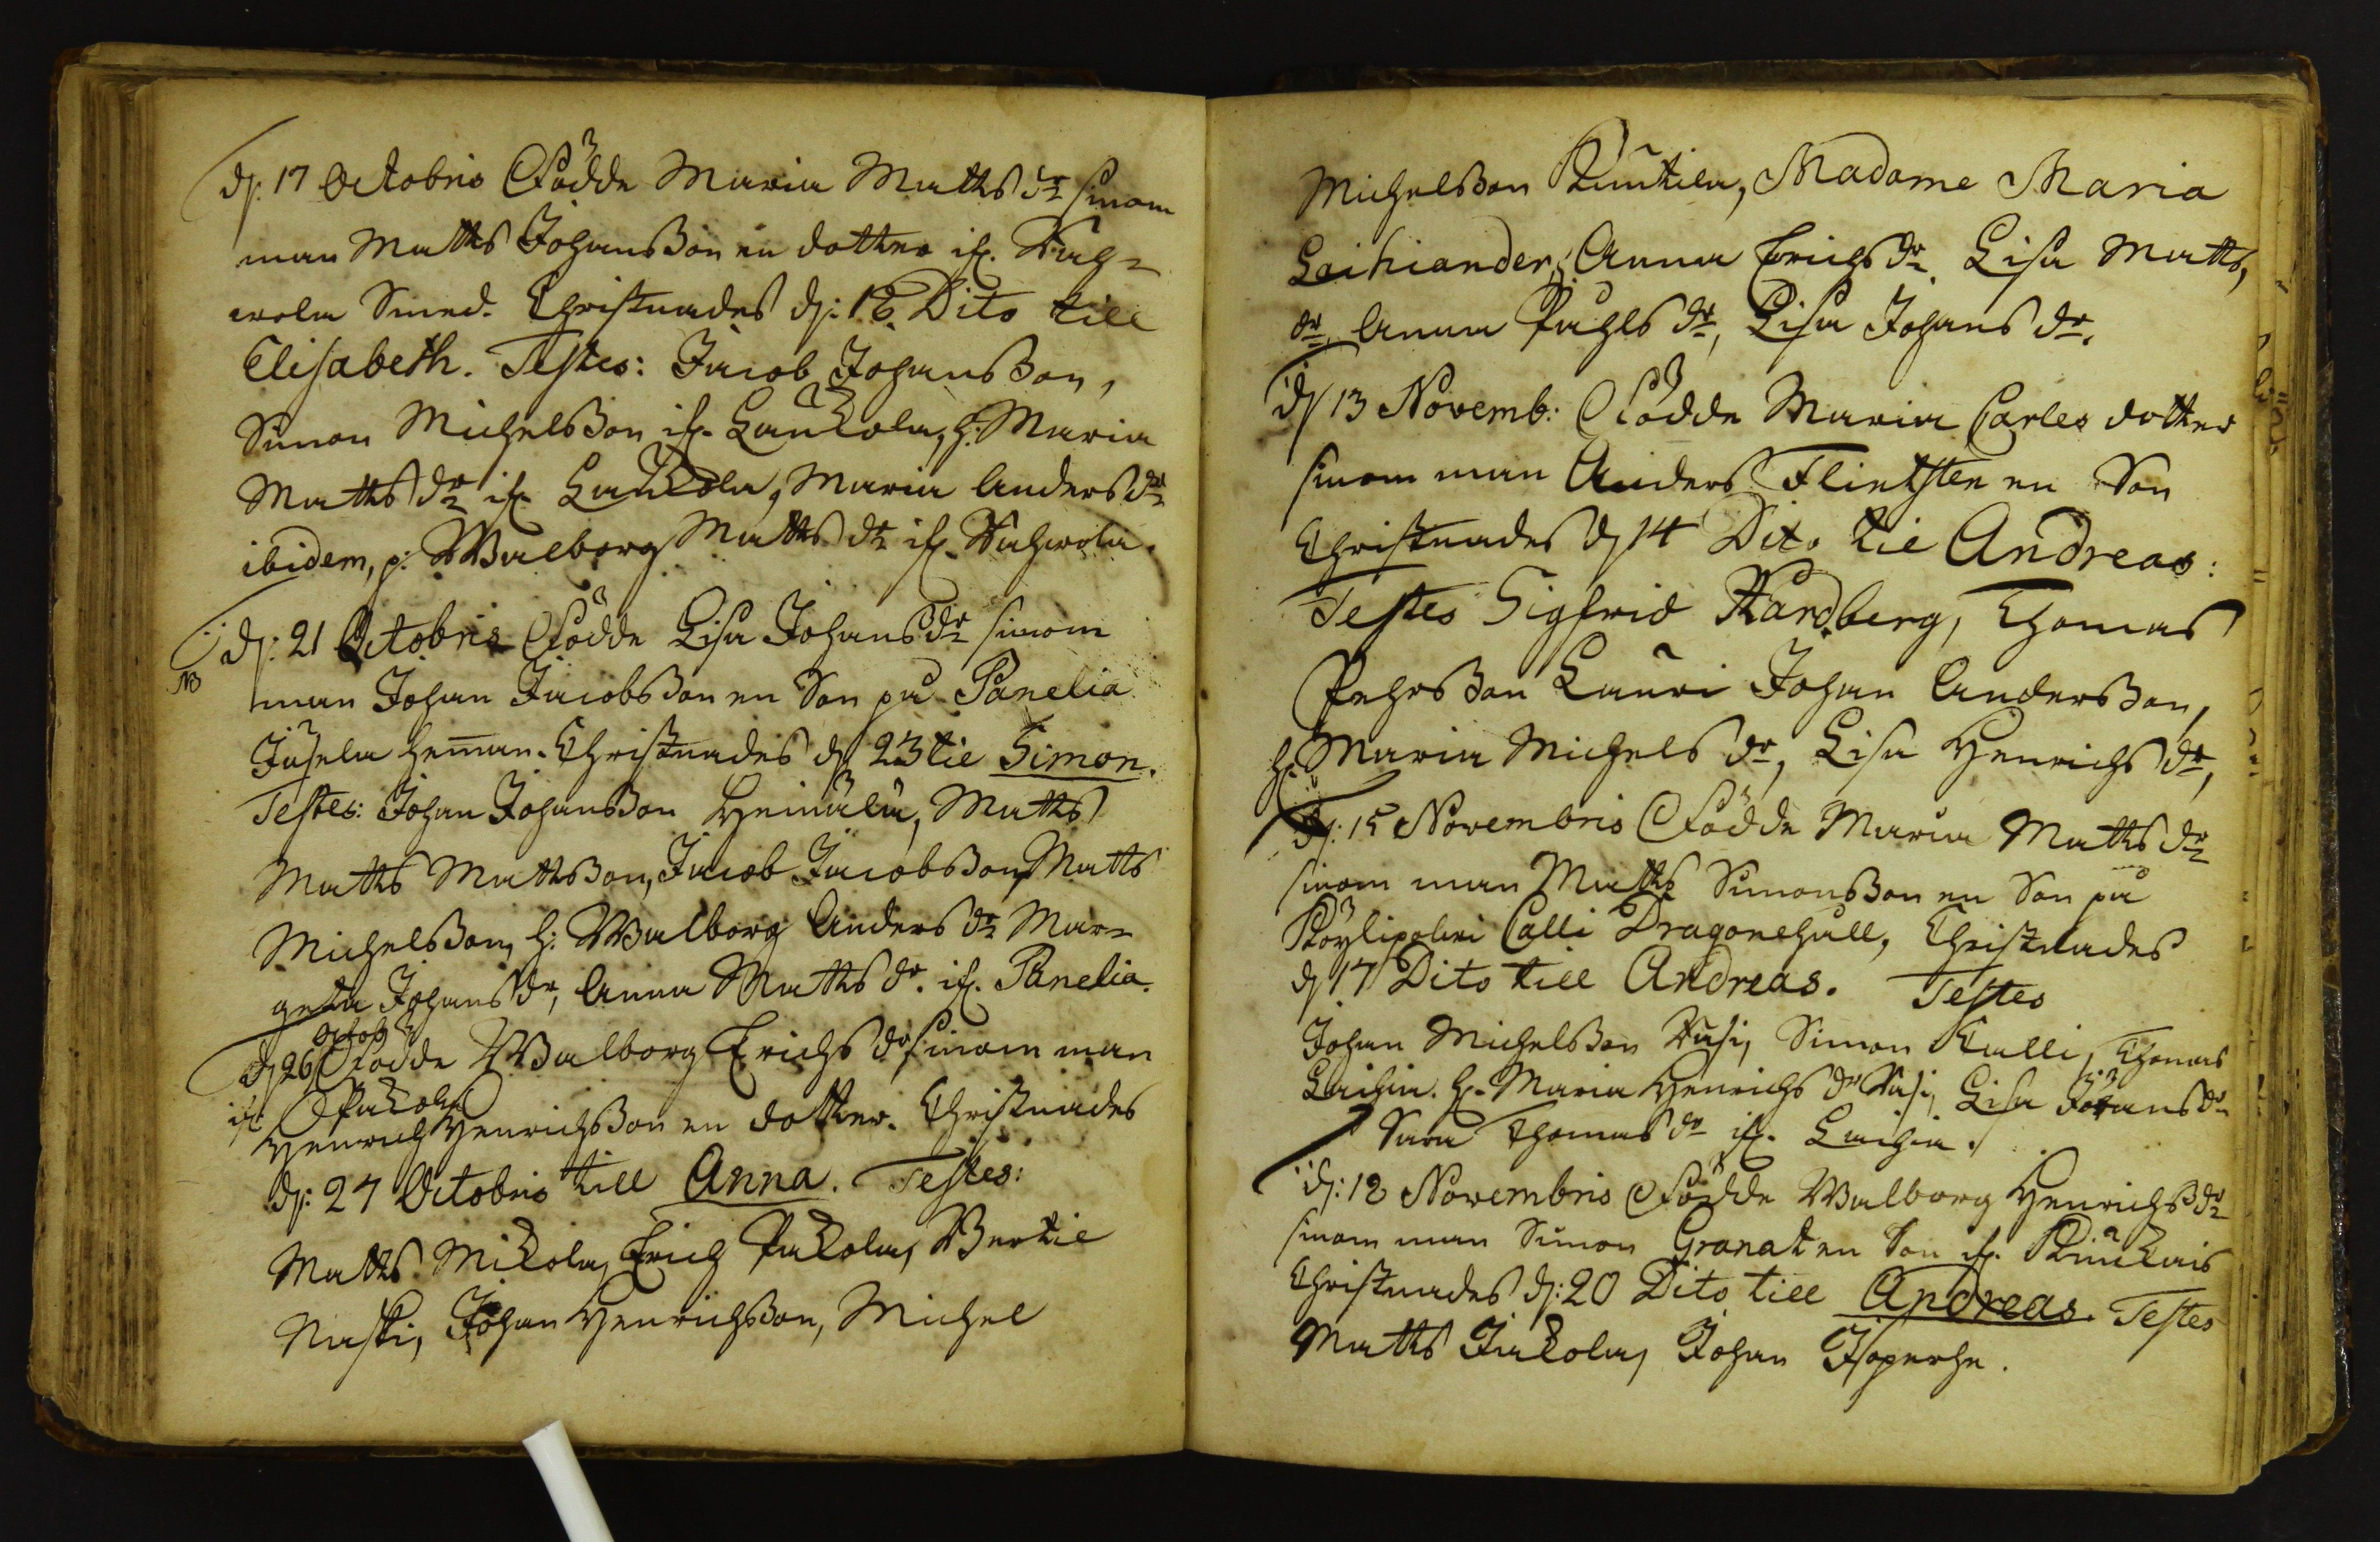 d. 17 Octobris Födde Maria Matts dr sinom
man Matts Johansson en dotter if.
Smed. Christnades d: 18. Dito till
Elisabeth. Testes: Jacob Johansson,
Simon Michelsson if. Laukola, h. Maria
Matts dr if. Laukola, Maria Anders dr
ibidem, p. Walborg Matts dr if.
d: 21 Octobris Födde Lisa Johansdr sinom
NB man Johan Jacobsson en Son på Panelia
Jusela heman. Christnades d 23 til Simon.
Testes: Johan Johansson Heinilä, Matts
Matts Mattsson, Jacob Jacobsson, Matts
Michelsson, h: Walborg Anders dr Mar=
geta Johans dr, Anna Matts dr. if. Panelia.
Octob
d 26 Födde Walborg Erichs dr sinom man
if. Pakola
Henrich Henrichsson en dotter. Christnades
d: 27 Octobris till Anna. Testes:
Matts Mikola, Erich Pakola, Bertil
Naski, Johan Henrichsson, Michel
Michelsson Kuutila, Madame Maria
Laihiander, Anna Erichs dr. Lisa Matts,
dr, Anna Påhls dr, Lisa Johans dr.
d 13 Novemb: Födde Maria Carles dotter
sinom man Anders Flintsten en Son
Christnades d 14 Dito til Andreas:
Testes Sigfrid Hardberg, Thomas
Pehrsson Lauri Johan Andersson,
h. Maria Michels dr, Lisa Henrichs dr,
d: 15 Novembris Födde Maria Matts dr
sinom man Matts Simonsson en Son på
Köylipolvi Calli Dragonehåll, Christnades
d 17 Dito till Andreas. Testes
Johan Michelsson Susi, Simon Kalli, Thomas
Laihia. h. Maria Henrichs dr Susi, Lisa Johans dr
Sara Thomas dr if. Laihia.
d: 18 Novembris Födde Walborg Henrichs dr
sinom man Simon Granat en Son if. Kiukais
Christnades d: 20 Dito till Andreas. Testes
Matts Jakola, Johan Isoperhe.